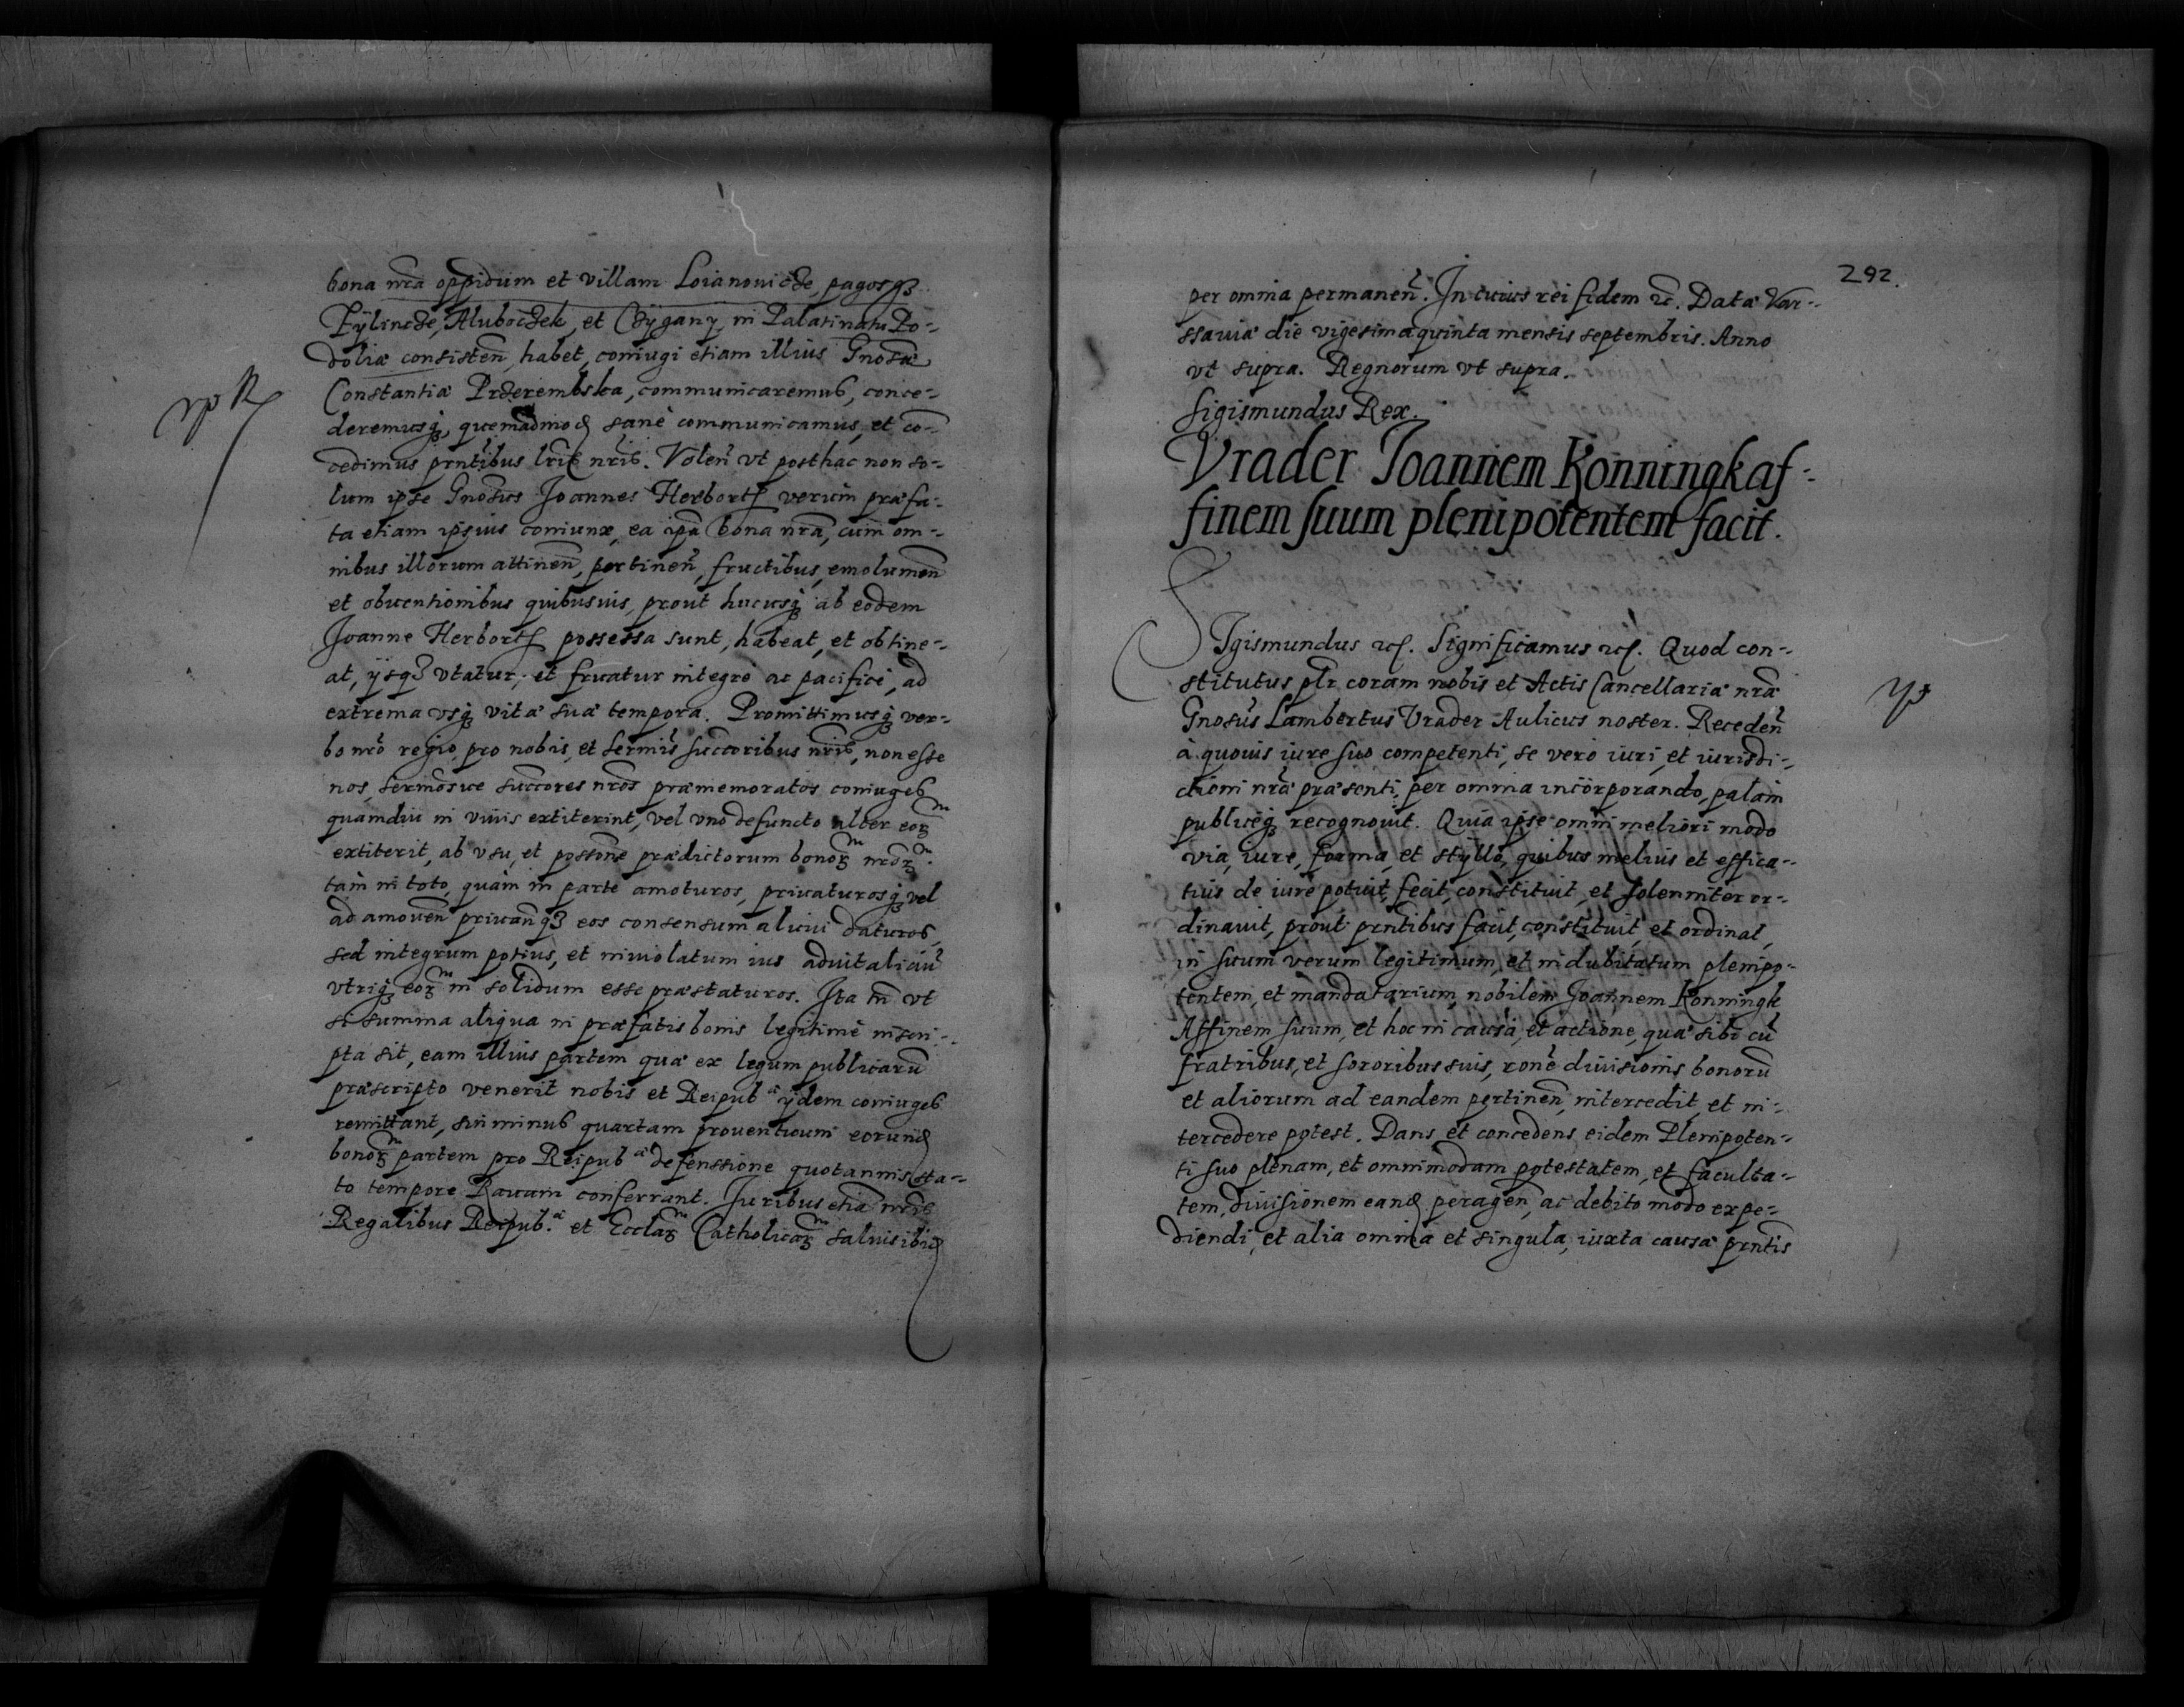 bona nrã oppidum et villam Loianovicze, pagosqȝ
Pÿlincze, Hluboczek, et Czÿgany, in Palatinatu Po-
doliæ consisten̄, habet, coniugi etiam illius Gnosæ
Constantiæ Przerembska, communicaremus, conce-
deremusq̃, quemadmod̃ sanè communicamus, et cō-
cedimus prntibus lris nris. Volen̄ vt posthac non so-
lum ipse Gnosus Joannes Herbort verùm præfa-
ta etiam ipsius coniunx, ea ipã bona nrã, cum om-
nibus illorum attinen̄, pertinen̄, fructibus, emolumen̄
et obventionibus quibusuis, prout hucusq̃ ab eodem
Joanne Herbort possessa sunt, habeat, et obtine-
at, ijsqȝ vtatur, et fruatur integrè ac pacificè, ad
extrema vsq̃ vitæ suæ tempora. Promittimusq̃ ver-
bo nrõ regio, pro nobis, et sermis succoribus nris, non esse
nos, sermosue succores nros præmemoratos coniuges
quamdiu in viuis extiterint, vel vno defuncto alter eoꝝ
extiterit, ab vsu, et possone prædictorum bonoꝝ nroꝝ.
tàm in toto, quàm in parte amoturos, priuaturosq̃ vel
ad amouen̄ priuan̄qȝ eos consensum alicui daturos,
sed integrum potius, et inuiolatum ius aduitaliciũ
vtriq̃ eoꝝ in solidum esse præstaturos. Ita tñ vt
si summa aliqua in præfatis bonis legitimè inscri-
pta sit, eam illius partem quæ ex legum publicarũ
præscripto venerit nobis et Reipubᶜᵃᵉ ijdem coniuges
remittant, sin minus quartam prouentuum eorund̃
bonoꝝ partem pro Reipubᶜᵃᵉ defenssione quotannis sta-
to tempore Rauam conferrant. Juribus etiã nris
Regalibus Reipub.ᶜᵃᵉ et Ecclaꝝ Catholicaꝝ saluis ibid̃
292.
per omnia permanen̄. In cuius rei fidem ꝛc. Datæ Var-
ssauiæ die vigesimaquinta mensis septembris. Anno
vt supra. Regnorum vt supra.
Sigismundus Rex.
Vrader Joannem Konningk af-
finem suum plenipotentem facit.
SIgismundus ꝛc. Significamus ꝛc. Quod con-
stitutus plr coram nobis et Actis Cancellariæ nræ
Gnosus Lambertus Vrader Aulicus noster. Receden̄
à quouis iure suo competenti, se verò iuri, et iurisdi-
ctioni nræ præsenti, per omnia incorporando, palàm
publiceq̃ recognouit. Quia ipse omni meliori modo
via, iure, forma, et styllo, quibus meliùs et effica-
tiùs de iure potuit, fecit, constituit, et solenniter or-
dinauit, prout prntibus facit, constituit, et ordinat,
in suum verum legitimum, et indubitatum plenipo-
tentem, et mandatarium, nobilem Joannem Konningk
Affinem suum, et hoc in causa, et actione, quæ sibi cũ
fratribus, et sororibus suis, rone diuisionis bonorũ
et aliorum ad eandem pertinen̄, intercedit, et in-
tercedere potest. Dans et concedens eidem Plenipoten-
ti suo plenam, et omnimodam potestatem, et faculta-
tem, diuisionem eand̃ peragen̄, ac debito modo expe-
diendi, et alia omnia et singula, iuxta causæ prntis